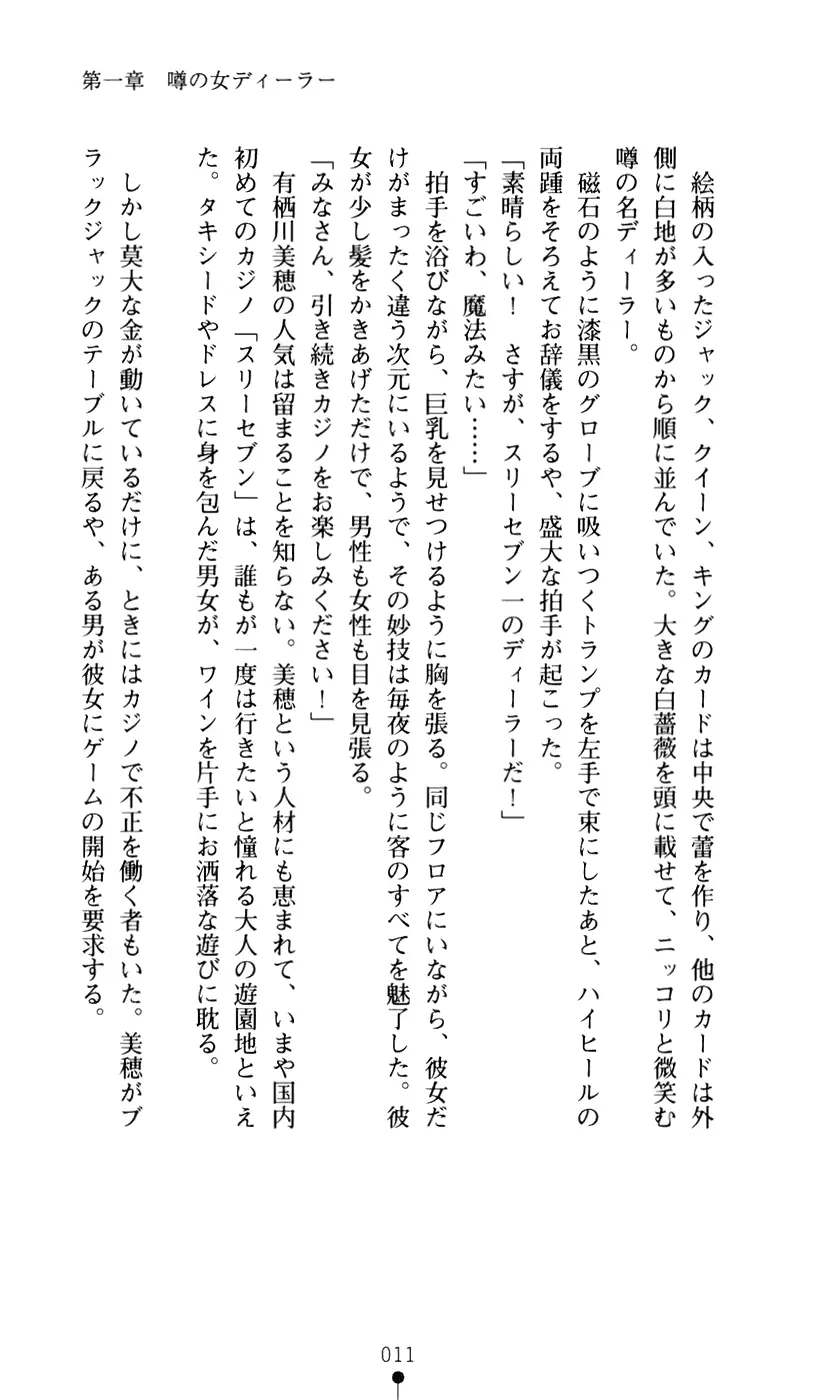 第一章　噂の女ディーラー
　絵柄の入ったジャック、クイーン、キングのカードは中央で蕾を作り、他のカードは外
側に白地が多いものから順に並んでいた。大きな白薔薇を頭に載せて、ニッコリと微笑む
噂の名ディーラー。
　磁石のように漆黒のグローブに吸いつくトランプを左手で束にしたあと、ハイヒールの
両踵をそろえてお辞儀をするや、盛大な拍手が起こった。
「素晴らしい！　さすが、スリーセブン一のディーラーだ！」
「すごいわ、魔法みたい……」
　拍手を浴びながら、巨乳を見せつけるように胸を張る。同じフロアにいながら、彼女だ
けがまったく違う次元にいるようで、その妙技は毎夜のように客のすべてを魅了した。彼
女が少し髪をかきあげただけで、男性も女性も目を見張る。
「みなさん、引き続きカジノをお楽しみください！」
　有栖川美穂の人気は留まることを知らない。美穂という人材にも恵まれて、いまや国内
初めてのカジノ「スリーセブン」は、誰もが一度は行きたいと憧れる大人の遊園地といえ
た。タキシードやドレスに身を包んだ男女が、ワインを片手にお洒落な遊びに耽る。
　しかし莫大な金が動いているだけに、ときにはカジノで不正を働く者もいた。美穂がブ
ラックジャックのテーブルに戻るや、ある男が彼女にゲームの開始を要求する。
011